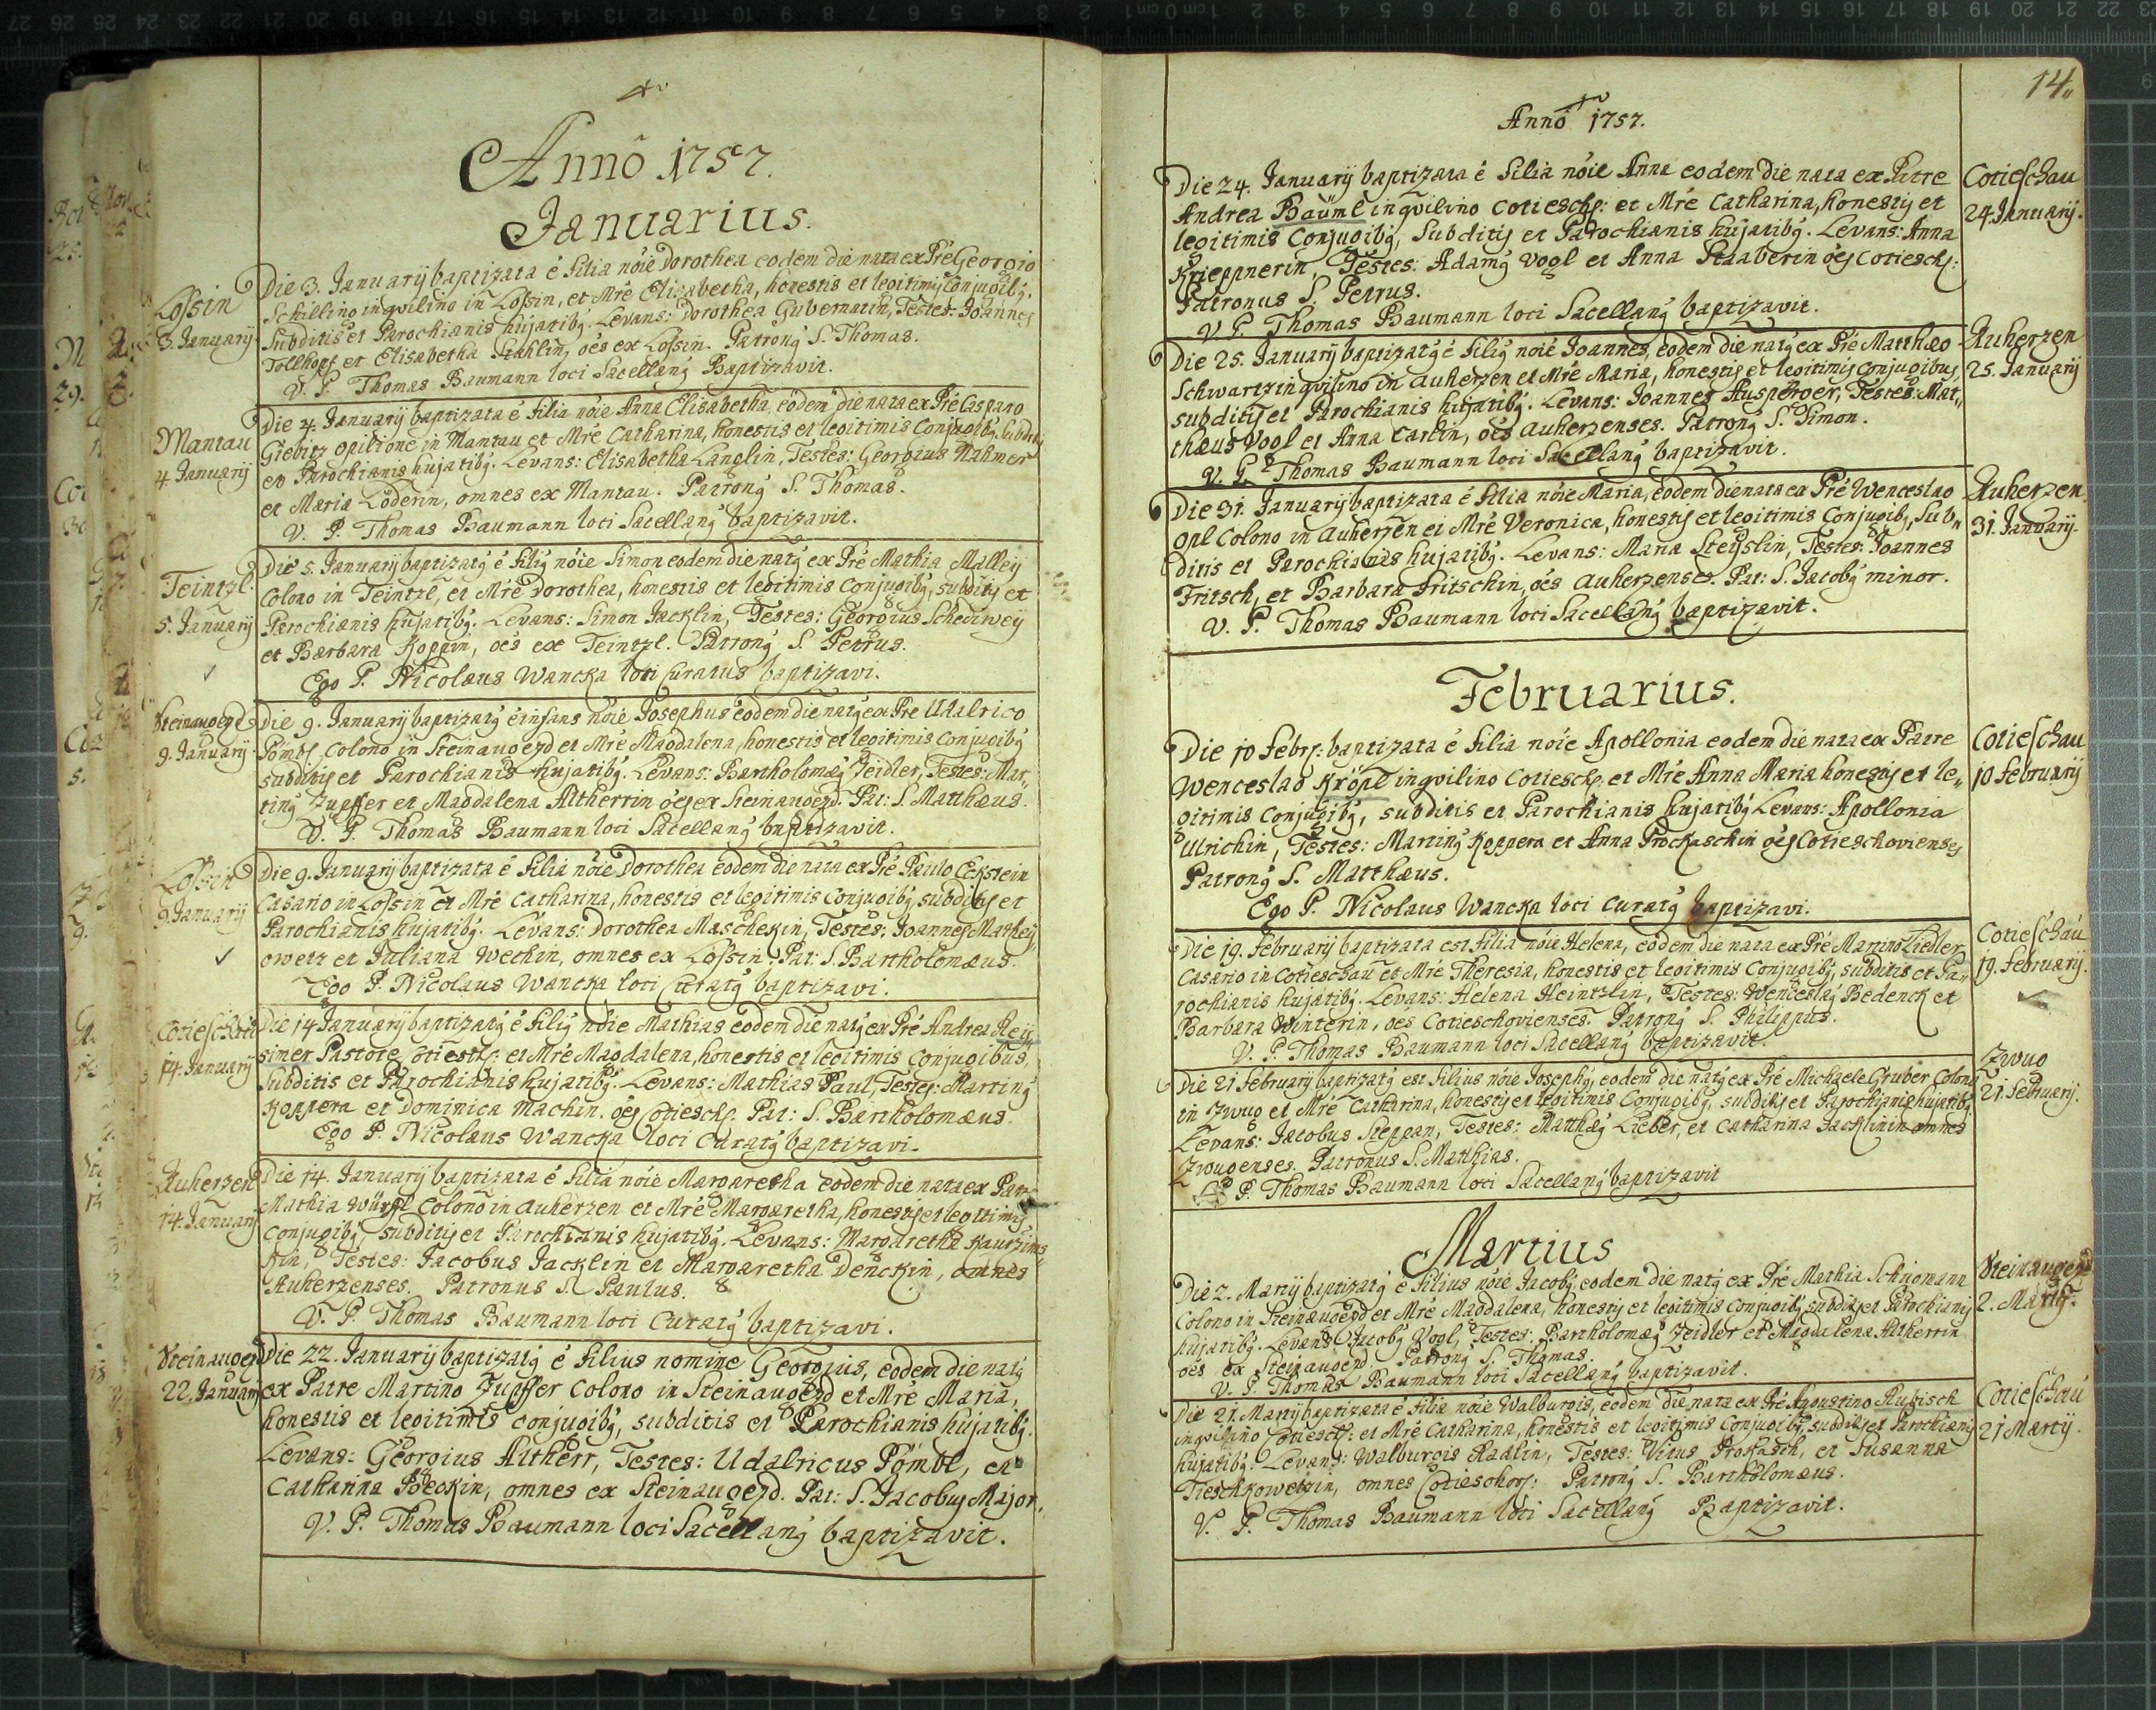 Annô 1757.
Januarius.
Lossin
3. Januarij
Die 3. Januarij baptizata é filia nôie Dorothea eodem die nata ex Pre Georgio
Schilling inqvilino in Lossin, et Mré Elisabetha, honestis et legitimis Conjugibꝰ,
Subditis et Parochianis hujatibꝰ. Levans: Dorothea Gubernatin, Testes: Joannes
Tollhopf et Elisabetha Stahlin, oés ex Lossin. Patronꝰ S. Thomas.
V. P. Thomas Baumann loci Sacellanꝰ Baptizavit.
Mantau
4. Januarij
Die 4. Januarij baptizata é filia nôie Anna Elisabetha, eodem die nata ex Pré Casparo
Giebitz opilione in Mantau et Mré Catharina, honestis et legitimis Conjugibꝰ, Subditis
et Parochianis hujatibꝰ. Levans: Elisabetha Langlin, Testes: Georgius Nahmer
et Maria Loderin, omnes ex Mantau. Patronꝰ S. Thomas.
V. P. Thomas Baumann loci Sacellanꝰ baptizavit.
Teintzl.
5. Januarij
Die 5. Januarij baptizatꝰ é filiꝰ nôie Simon eodem die natꝰ ex Pré Mathia Malley
Colono in Teintzl, et Mré Dorothea, honestis et legitimis Conjugibꝰ, subditis et
Parochianis hujatibꝰ. Levans: Simon Jacklin, Testes: Georgius Scheuwey
et Barbara Koppin, oés ex Teintzl. Patronꝰ S. Petrus.
Ego P. Nicolaus Wancka loci Curatus baptizavi.
Steinaugezd
9. Januarij
Die 9. Januarij baptizatꝰ é infans nôie Josephus eodem die natꝰ ex Pre Udalrico
Pömbl Colono in Steinaugezd et Mré Magdalena, honestis et legitimis Conjugibꝰ
subditis et Parochianis hujatibꝰ. Levans: Bartholomæꝰ Zeidler, Testes: Mar„
tinꝰ Zupffer et Magdalena Altherrin oés ex Steinaugezd. Pat: S. Matthæus.
V. P. Thomas Baumann loci Sacellanꝰ baptizavit.
Lossin
9. Januarij
Die 9. Januarij baptizata é filia nôie Dorothea eodem die nata ex Pré Paulo Eckstein
Casario in Lossin et Mré Catharina, honestis et legitimis Conjugibꝰ, subditis et
Parochianis hujatibꝰ. Levans: Dorothea Mascheskin, Testes: Joannes Mathey
owetz et Juliana Weckin, omnes ex Lossin. Pat: S. Bartholomæus.
Ego P. Nicolaus Wancka loci Curatꝰ baptizavi.
Cotieschau
14. Januarij
Die 14 Januarij baptizatꝰ é filiꝰ nôie Mathias eodem die natꝰ ex Pré Andrea Rey„
simer Pastore Cotiesch: et Mré Magdalena, honestis et legitimis Conjugibus,
Subditis et Parochianis hujatibꝰ. Levans: Mathias Paul, Testes: Martinꝰ
Koppera et Dominica Machin. oés Cotiesch: Pat: S. Bartholomæus.
Ego P. Nicolaus Wancka loci Curatꝰ baptizavi.
Auherzen
14. Januarij
Die 14. Januarij baptizata é filia nôie Margaretha eodem die nata ex Patre
Mathia Würffl Colono in Auherzen et Mré Margaretha, honestis et legitimis
Conjugibꝰ, subditis et Parochianis hujatibꝰ. Levans: Margaretha Kaurzims„
kin, Testes: Jacobus Jacklin et Margaretha Denckin, omnes
Auherzenses. Patronus S. Paulus.
V. P. Thomas Baumann loci Curatꝰ baptizavi.
Steinaugezd
22. Januarij
Die 22. Januarij baptizatꝰ é filius nomine Georgius, eodem die natꝰ
ex Patre Martino Zupffer Colono in Steinaugezd et Mré Maria,
honestis et legitimis conjugibꝰ, subditis et Parochianis hujatibꝰ.
Levans: Georgius Altherr, Testes: Udalricus Pömbl, et
Catharina Beckin, omnes ex Steinaugezd. Pat: S. Jacobus Major.
V. P. Thomas Baumann loci Sacellanꝰ baptizavit.
14„
Annô 1757.
Cotieschau
24. Januarij.
Die 24. Januarij baptizata é filia nôie Anna eodem die nata ex Patre
Andrea Bäuml inqvilino Cotiesch: et Mré Catharina, honestis et
legitimis Conjugibꝰ, Subditis et Parochianis hujatibꝰ. Levans: Anna
Krieppnerin, Testes: Adamꝰ Vogl et Anna Staaberin oés Cotiesch:
Patronus S. Petrus.
V. P. Thomas Baumann loci Sacellanꝰ baptizavit.
Auherzen
25. Januarij
Die 25. Januarij baptizatꝰ é filiꝰ nôie Joannes, eodem die natꝰ ex Pré Matthæo
Schwartz inqvilino in Auherzen et Mré Maria, honestis et legitimis conjugibus
subditis et Parochianis hujatibꝰ. Levans: Joannes Ausperger, Testes: Mat„
thæus Vogl et Anna Carlin, oés Auherzenses. Patronꝰ S. Simon.
V. P. Thomas Baumann loci Sacellanꝰ baptizavit.
Auherzen
31. Januarij.
Die 31. Januarij baptizata é filia nôie Maria, eodem die nata ex Pré Wenceslao
Opl Colono in Auherzen et Mré Veronica, honestis et legitimis Conjugibꝰ, Sub„
ditis et Parochianis hujatibꝰ. Levans: Maria Steyslin, Testes: Joannes
Fritsch, et Barbara Fritschin, oés Auherzenses. Pat: S. Jacobꝰ minor.
V. P. Thomas Baumann loci Sacellanꝰ baptizavit.
Februarius.
Cotieschau
10 Februarij
Die 10 Febr: baptizata é filia nôie Apollonia eodem die nata ex Patre
Wenceslao Kröpl inqvilino Cotiesch: et Mré Anna Maria honestis et le„
gitimis Conjugibꝰ, subditis et Parochianis hujatibꝰ Levans: Apollonia
Ulrichin, Testes: Martinꝰ Koppera et Anna Prockaschin oés Cotieschovienses
Patronꝰ S. Matthæus.
Ego P. Nicolaus Wancka loci Curatꝰ baptizavi.
Cotieschau
19. Februarij.
Die 19. Februarij baptizata est filia nôie Helena, eodem die nata ex Pré Martino Ziedler
Casario in Cotieschau et Mré Theresia, honestis et legitimis Conjugibꝰ, subditis et Pa„
rochianis hujatibꝰ. Levans: Helena Heintzlin, Testes: Wenceslaꝰ Bedenck et
Barbara Winterin, oés Cotieschovienses. Patronꝰ S. Philippus.
V. P. Thomas Baumann loci Sacellanꝰ baptizavit.
Zwug
21. Februarij.
Die 21 Februarij baptizatꝰ est filius nôie Josephꝰ, eodem die natꝰ ex Pré Michaele Gruber Colono
in Zwug et Mré Catharina, honestis et legitimis Conjugibꝰ, subditis et Parochianis hujatibꝰ
Levans: Jacobus Steppan, Testes: Matthæꝰ Lieber, et Catharina Jacklinin omnes
Zwugenses. Patronus S. Matthias.
V. P. Thomas Baumann loci Sacellanꝰ baptizavit
Martius
Steinaugezd
2. Martij.
Die 2. Martij baptizatꝰ é filius nôie Jacobꝰ eodem die natꝰ ex Pré Mathia Schugmann
Colono in Steinaugezd et Mré Magdalena, honestis et legitimis conjugibꝰ subditis et Parochianis
hujatibꝰ. Levans Jacobꝰ Vogl, Testes: Bartholomæꝰ Zeidler et Magdalena Altherrin
oés ex Steinaugezd. Patronꝰ S. Thomas.
V. P. Thomas Baumann loci Sacellanꝰ baptizavit.
Cotieschau
21 Martij.
Die 21. Martij baptizata é filia nôie Walburgis, eodem die nata ex Pré Agoustino Kubisch
inqvilino Cotiesch: et Mré Catharina, honestis et legitimis Conjugibꝰ, subditis et Parochianis
hujatibꝰ. Levans: Walburgis Radlin, Testes: Vitus Prokasch, et Susanna
Tieschkowetzin, omnes Cotieschov: Patronꝰ S. Bartholomæus.
V. P. Thomas Baumann loci Sacellanꝰ Baptizavit.